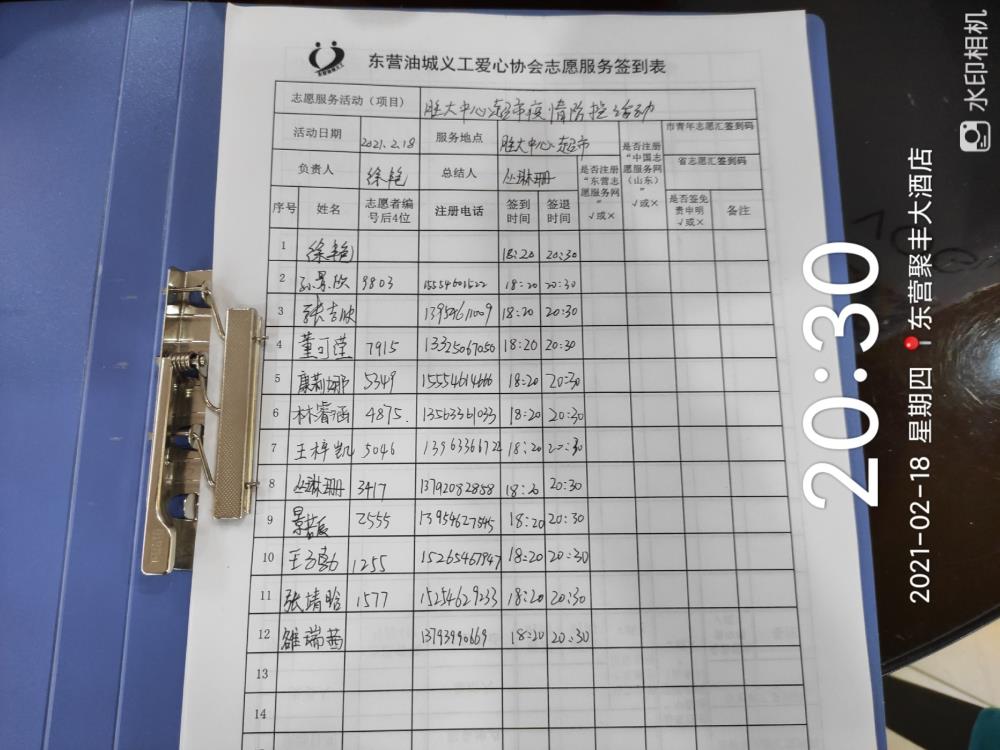 东营油城义工爱心协会志愿服务签到表
志愿服务活动（项目） 胜大中心超市疫情防控活动
活动日期 2021.2.18 服务地点 胜大中心超市 是否注册“东营志愿服务网”√或× 是否注册“中国志愿服务网（山东）”√或× 市青年志愿汇签到码
负责人 徐艳 总结人 丛琳珊 省志愿汇签到码
序号 姓名 志愿者编号后4位 注册电话 签到时间 签退时间 是否签免责申明√或× 备注
1 徐艳 18:20 20:30
2 孙景欣 9803 15554601522 18:20 20:30
3 张吉 18:20 20:30
4 董可滢 7915 13325067050 18:20 20:30
5 康莉娜 5349 15554614666 18:20 20:30
6 林睿涵 4875. 13563361033 18:20 20:30
7 王梓凯 5046 18:20 20:30
8 丛琳珊 3417 13792082858 18:20 20:30
9 2555 13954627545 18:20 20:30
10 王子 1255 15265467947 18:20 20:30
11 张靖晗 1577 15254629233 18:20 20:30
12 瑞茜 13793990669 18:20 20:30
13
14
水印相机
20:30
2021-02-18 星期四 东营聚丰大酒店